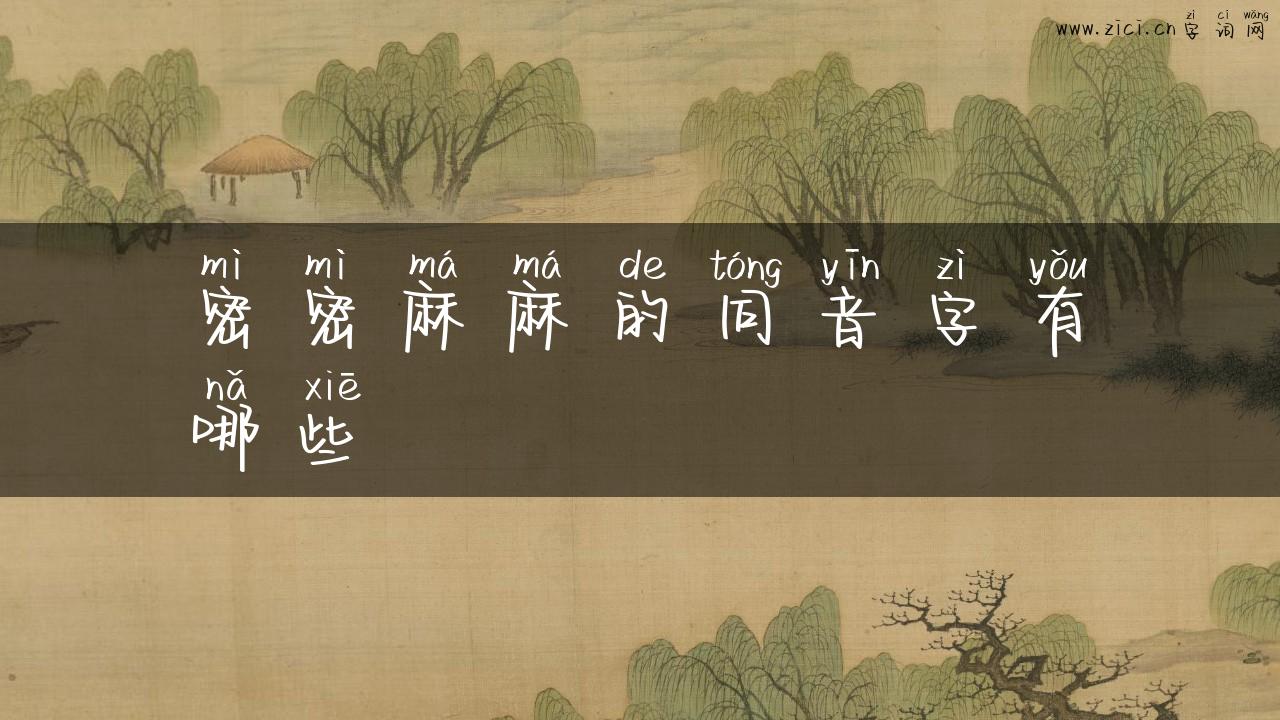 zì cí wǎng
www.zici.cn 字 词 网
mì mì má má de tóng yīn zì yǒu
密 密 麻 麻 的 同 音 字 有
nǎ xiē
哪 些